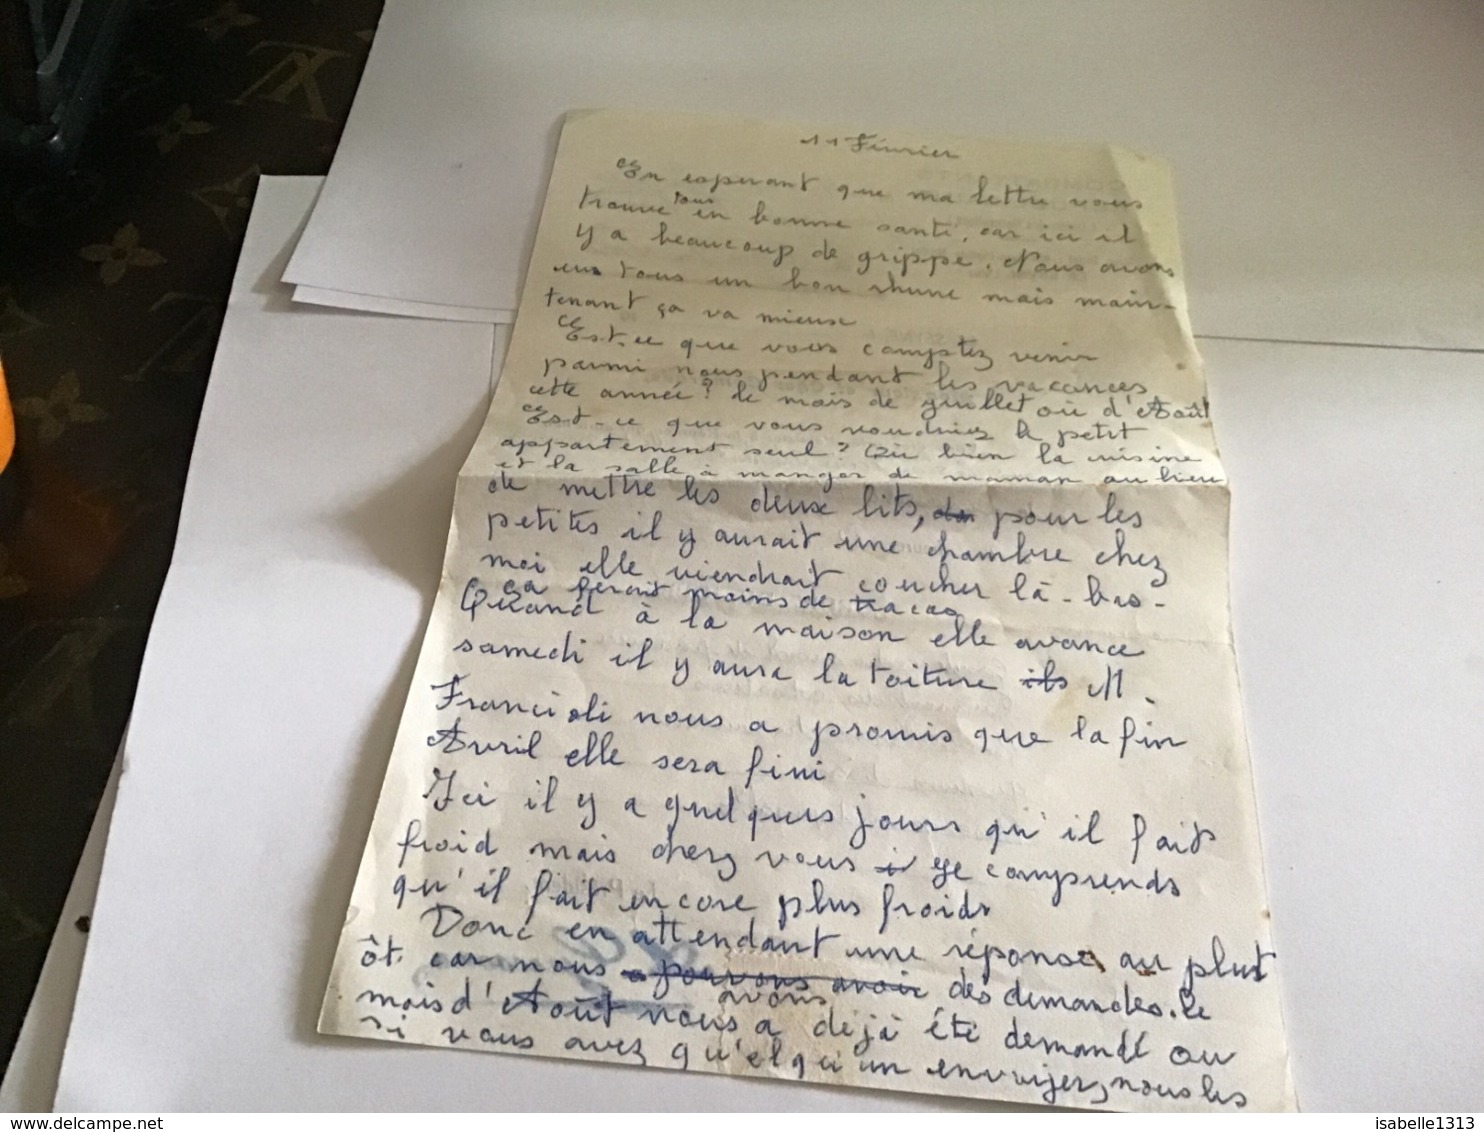 11 Février
En esperant que ma lettre vous
trouve tous en bonne santé, car ici il
y a beaucoup de grippe. Nous avons
eus tous un bon rhume mais main-
tenant ça va mieux
Est-ce que vous comptez venir
parmi nous pendant les vacances
cette année? le mois de juillet où d'Août
Est-ce que vous voudriez le petit
appartement seul? Où bien la cuisine
et la salle à manger de maman au lieu
de mettre les deux lits, pour les
petites il y aurait une chambre chez
moi elle viendrait coucher là-bas-
ça ferait moins de tracas
Quand à la maison elle avance
samedi il y aura la toiture ils M.
Francioli nous a promis que la fin
Avril elle sera fini
Ici il y a quelques jours qu'il fait
froid mais chez vous je comprends
qu'il fait encore plus froids
Donc en attendant une réponse au plut
ôt. car nous a pouvons avoir des demandes. le
avons
mois d'Août nous a déjà été demandé ou
si vous avez qu'elqu'un envoyer, nous les
isabelle1313